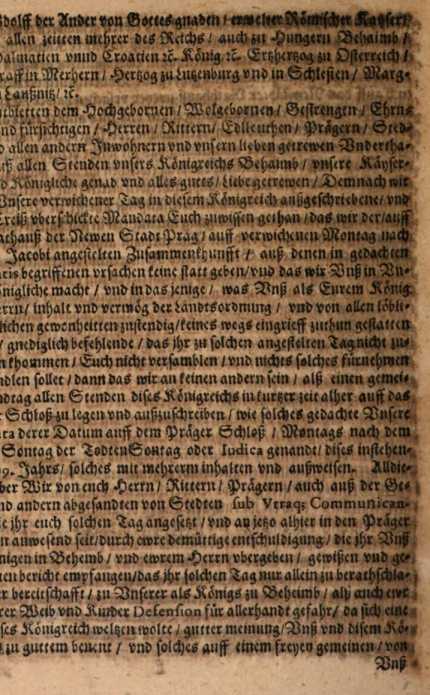 dolff der Ander von Gottes gnaden / erwelter Römischer Kayser /
allen zeitten mehrer des Reichs / auch zu Hungern Behaimb /
almatien vnnd Croatien ꝛc. König ꝛc. Ertzhertzog zu Osterreich /
raff in Merhern / Hertzog zu Lutzenburg vnd in Schlesien / Marg-
Laußnitz / ꝛc.
ntbietten dem Hochgebornen / Wolgebornen / Gestrengen / Ehrn-
nd fürsichtigen / Herren / Rittern / Edlleuthen / Prägern / Sted-
d allen andern Inwohnern vnd vnsern lieben getrewen Vndertha-
uß allen Stenden vnsers Königreichs Behaimb / vnsere Käyser-
d Königliche genad vnd alles gutes / Liebe getrewen / Demnach wir
Vnsere verwichener Tag in diesem Königreich außgeschriebene / vnd
Creiß vberschickte Mandata Euch zuwissen gethan / das wir der / auff
athauß der Newen Stadt Prag / auff verwichenen Montag nach
Jacobi angestelten Zusammenkhunfft / auß denen in gedachten
aris begriffenen vrsachen keine statt geben / vnd das wir Vnß in Vn-
nigliche macht / vnd in das jenige / was Vnß als Eurem König
errn / inhalt vnd vermög der Landtsordnung / vnd von allen löbli-
lichen gewonheitten zustendig / keines wegs eingrieff zuthun gestatten
/ gnediglich befehlende / das ihr zu solchen angestelten Tag nicht zu-
n khommen / Euch nicht versamblen / vnd nichts solches fürnehmen
ndlen sollet / dann das wir an keinen andern sein / alß einen gemei-
ndtag allen Stenden dises Königreichs in kurtzer zeit alher auff das
r Schloß zu legen vnd außzuschreiben / wie solches gedachte Vnsere
ata derer Datum auff dem Präger Schloß / Montags nach dem
Sontag der Todten Sontag oder Iudica genandt / dises instehen-
09. Jahrs / solches mit mehrerm inhalten vnd außweisen. Alldie-
ber Wir von euch Herrn / Rittern / Prägern / auch auß der Ge-
nd andern abgesandten von Stedten sub Vtraq; Communican-
ie ihr euch solchen Tag angesetzt / vnd anjetzo alhier in den Präger
n anwesend seit / durch ewre demüttige entschuldigung / die ihr Vnß
nigen in Behemb / vnd ewrem Herrn vbergeben / gewißen vnd ge-
ten bericht empfangen / das ihr solchen Tag nur allein zu berathschla-
er bereitschafft / zu Vnserer als Königs zu Beheimb / alß auch ewe
rer Weib vnd Kinder Defension für allerhandt gefahr / da sich eine
ses Königreich weltzen wolte / gutter meinung / Vnß vnd disem Kö-
zu guttem benent / vnd solches auff einem freyen gemeinen / von
Vnß